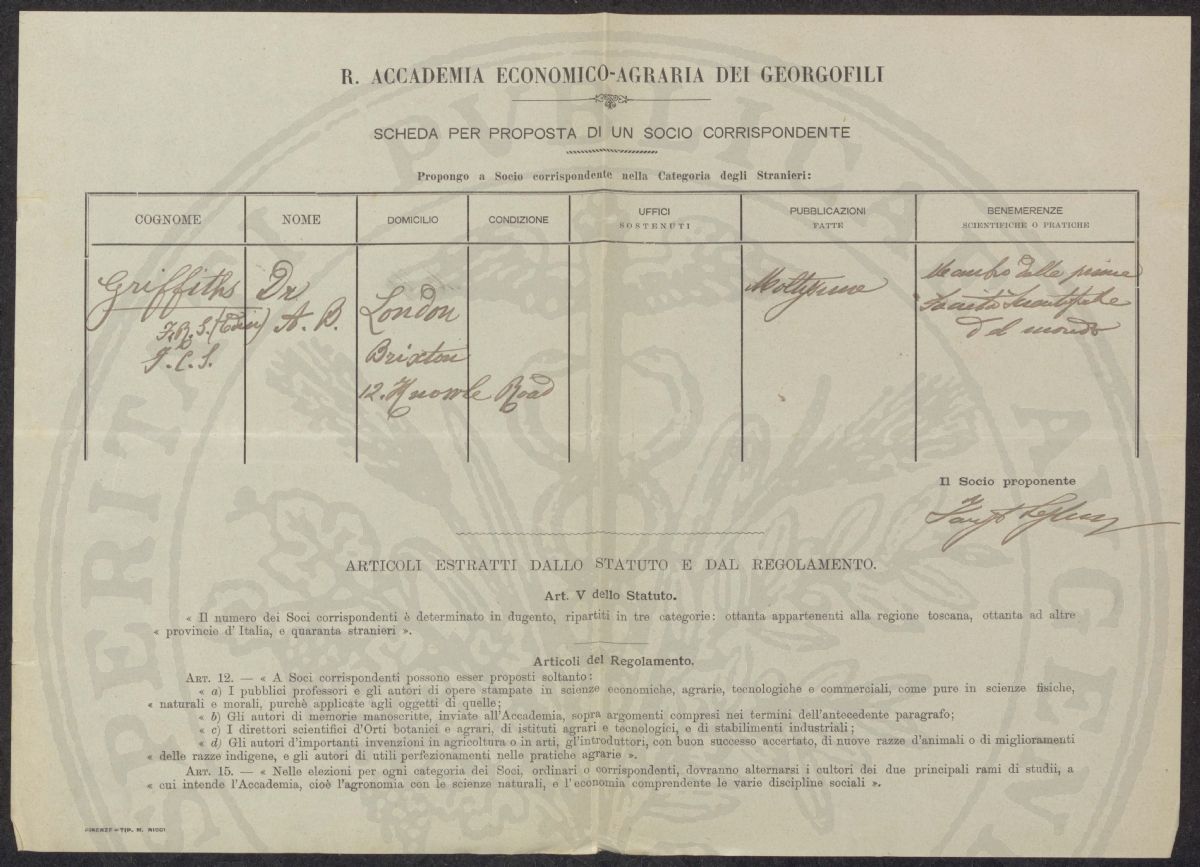 PROSPERITATI PUBLICAE AUGENDAE
R. ACCADEMIA ECONOMICO-AGRARIA DEI GEORGOFILI
SCHEDA PER PROPOSTA DI UN SOCIO CORRISPONDENTE
Propongo a Socio corrispondente nella Categoria degli Stranieri:
COGNOME NOME DOMICILIO CONDIZIONE UFFICI SOSTENUTI PUBBLICAZIONI FATTE BENEMERENZE SCIENTIFICHE O PRATICHE
Griffiths Dr Moltissime Membro delle prime
F.R.S. (Edin) A. B. London Società Scientifiche
F.C.S. Brixton del mondo
12. Knowle Road
Il Socio proponente
ARTICOLI ESTRATTI DALLO STATUTO E DAL REGOLAMENTO.
Art. V dello Statuto.
« Il numero dei Soci corrispondenti è determinato in dugento, ripartiti in tre categorie: ottanta appartenenti alla regione toscana, ottanta ad altre
« provincie d'Italia, e quaranta stranieri ».
Articoli del Regolamento.
ART. 12. — « A Soci corrispondenti possono esser proposti soltanto:
« a) I pubblici professori e gli autori di opere stampate in scienze economiche, agrarie, tecnologiche e commerciali, come pure in scienze fisiche,
« naturali e morali, purchè applicate agli oggetti di quelle;
« b) Gli autori di memorie manoscritte, inviate all'Accademia, sopra argomenti compresi nei termini dell'antecedente paragrafo;
« c) I direttori scientifici d'Orti botanici e agrari, di istituti agrari e tecnologici, e di stabilimenti industriali;
« d) Gli autori d'importanti invenzioni in agricoltura o in arti, gl'introduttori, con buon successo accertato, di nuove razze d'animali o di miglioramenti
« delle razze indigene, e gli autori di utili perfezionamenti nelle pratiche agrarie ».
ART. 15. — « Nelle elezioni per ogni categoria dei Soci, ordinari o corrispondenti, dovranno alternarsi i cultori dei due principali rami di studii, a
« cui intende l'Accademia, cioè l'agronomia con le scienze naturali, e l'economia comprendente le varie discipline sociali ».
FIRENZE — TIP. M. RICCI